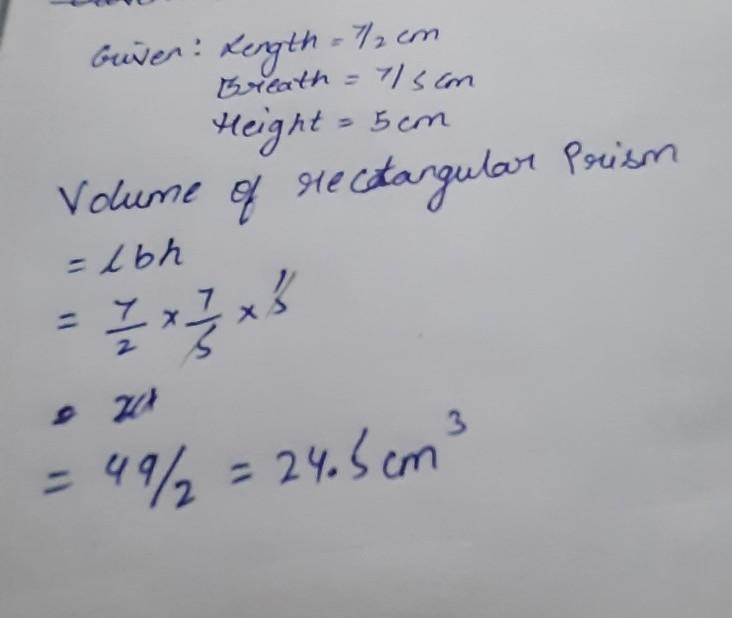 Given: Length = 7/2 cm
Breath = 7/5 cm
Height = 5 cm
Volume of rectangular Prism
= lbh
= 7/2 × 7/5 × 5 1
=
= 49/2 = 24.5 cm³